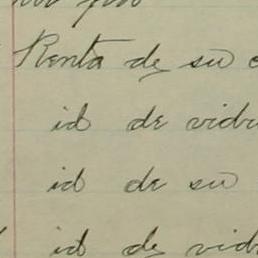 Renta de su
id de vidr
id de su
id de vid